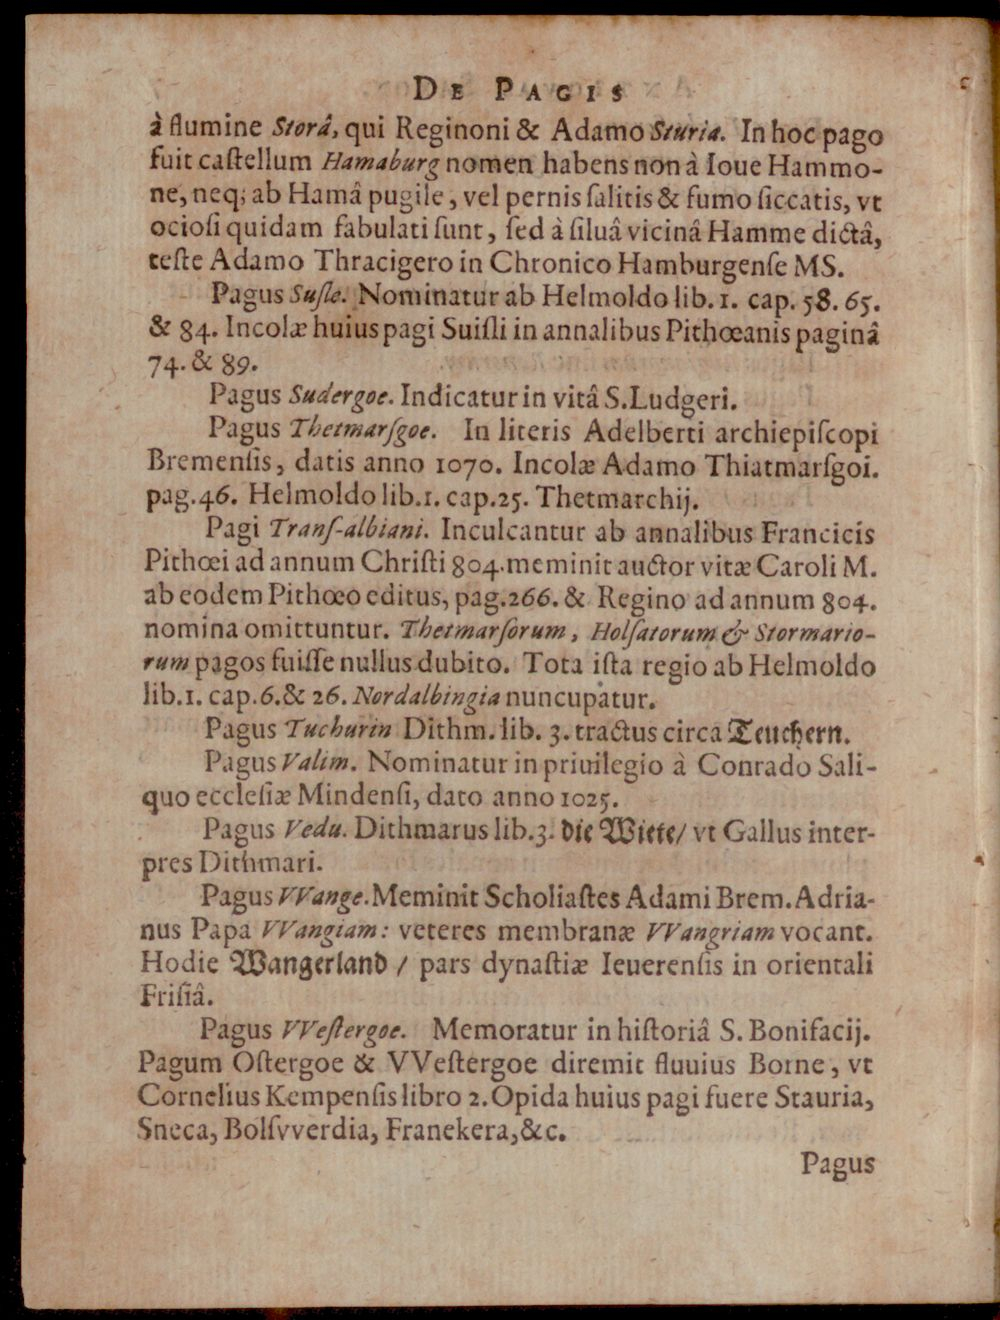 DE PAGIS
à flumine Storâ, qui Reginoni & Adamo Sturia. In hoc pago
fuit caſtellum Hamaburg nomen habens non à Ioue Hammo-
ne, neq; ab Hamâ pugile, vel pernis ſalitis & fumo ſiccatis, vt
ocioſi quidam fabulati ſunt, ſed à ſiluâ vicinâ Hamme dictâ,
teſte Adamo Thracigero in Chronico Hamburgenſe MS.
Pagus Suſle. Nominatur ab Helmoldo lib. 1. cap. 58. 65.
& 84. Incolæ huius pagi Suiſli in annalibus Pithœanis paginâ
74. & 89.
Pagus Sudergoe. Indicatur in vitâ S. Ludgeri.
Pagus Thetmarſgoe. In literis Adelberti archiepiſcopi
Bremenſis, datis anno 1070. Incolæ Adamo Thiatmarſgoi.
pag. 46. Helmoldo lib. 1. cap. 25. Thetmarchij.
Pagi Tranſ-albiani. Inculcantur ab annalibus Francicis
Pithœi ad annum Chriſti 804. meminit auctor vitæ Caroli M.
ab eodem Pithœo editus, pag. 266. & Regino ad annum 804.
nomina omittuntur. Thetmarſorum, Holſatorum & Stormario-
rum pagos fuiſſe nullus dubito. Tota iſta regio ab Helmoldo
lib. 1. cap. 6. & 26. Nordalbingia nuncupatur.
Pagus Tuchurin Dithm. lib. 3. tractus circa Teuchern.
Pagus Valim. Nominatur in priuilegio à Conrado Sali-
quo eccleſiæ Mindenſi, dato anno 1025.
Pagus Vedu. Dithmarus lib. 3. die Wiete/ vt Gallus inter-
pres Dithmari.
Pagus VVange. Meminit Scholiaſtes Adami Brem. Adria-
nus Papa VVangiam: veteres membranæ VVangriam vocant.
Hodie Wangerland / pars dynaſtiæ Ieuerenſis in orientali
Friſiâ.
Pagus VVeſtergoe. Memoratur in hiſtoriâ S. Bonifacij.
Pagum Oſtergoe & VVeſtergoe diremit fluuius Borne, vt
Cornelius Kempenſis libro 2. Opida huius pagi fuere Stauria,
Sneca, Bolſvverdia, Franekera, &c.
Pagus